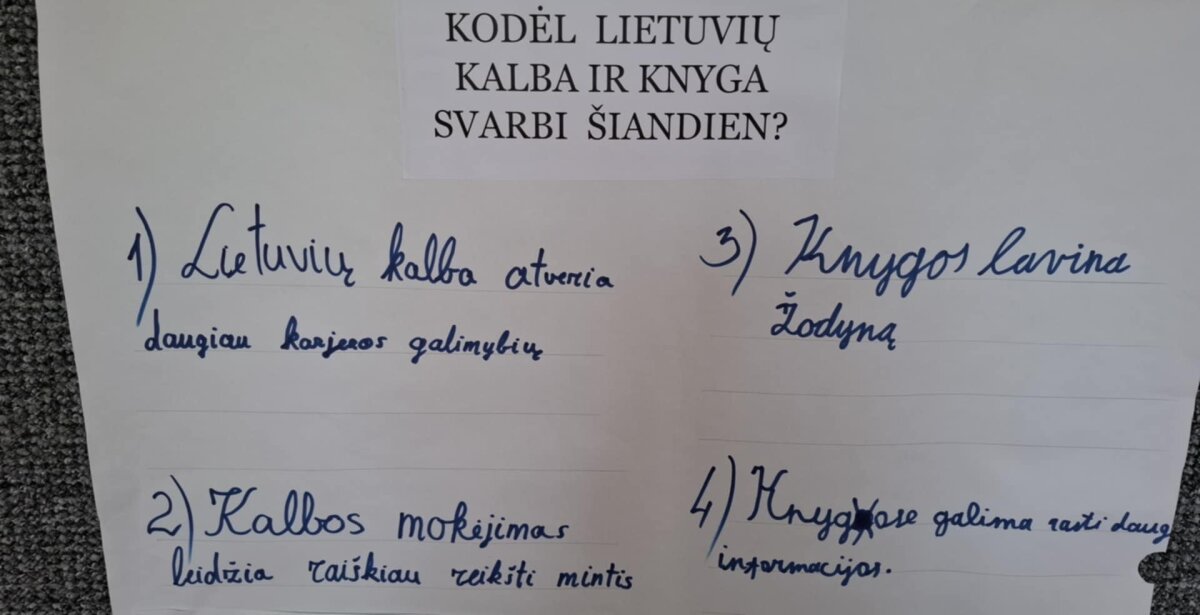 KODĖL LIETUVIŲ
KALBA IR KNYGA
SVARBI ŠIANDIEN?
1) Lietuvių kalba atveria
daugiau karjeros galimybių
2) Kalbos mokėjimas
leidžia raiškiau reikšti mintis
3) Knygos lavina
žodyną
4) Knygose galima rasti daug
informacijos.